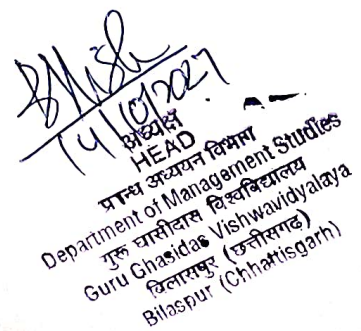 14/10/2021
अध्यक्ष
HEAD
प्रबन्ध अध्ययन विभाग
Department of Management Studies
गुरू घासीदास विश्वविद्यालय
Guru Ghasidas Vishwavidyalaya
बिलासपुर (छत्तीसगढ़)
Bilaspur (Chhattisgarh)